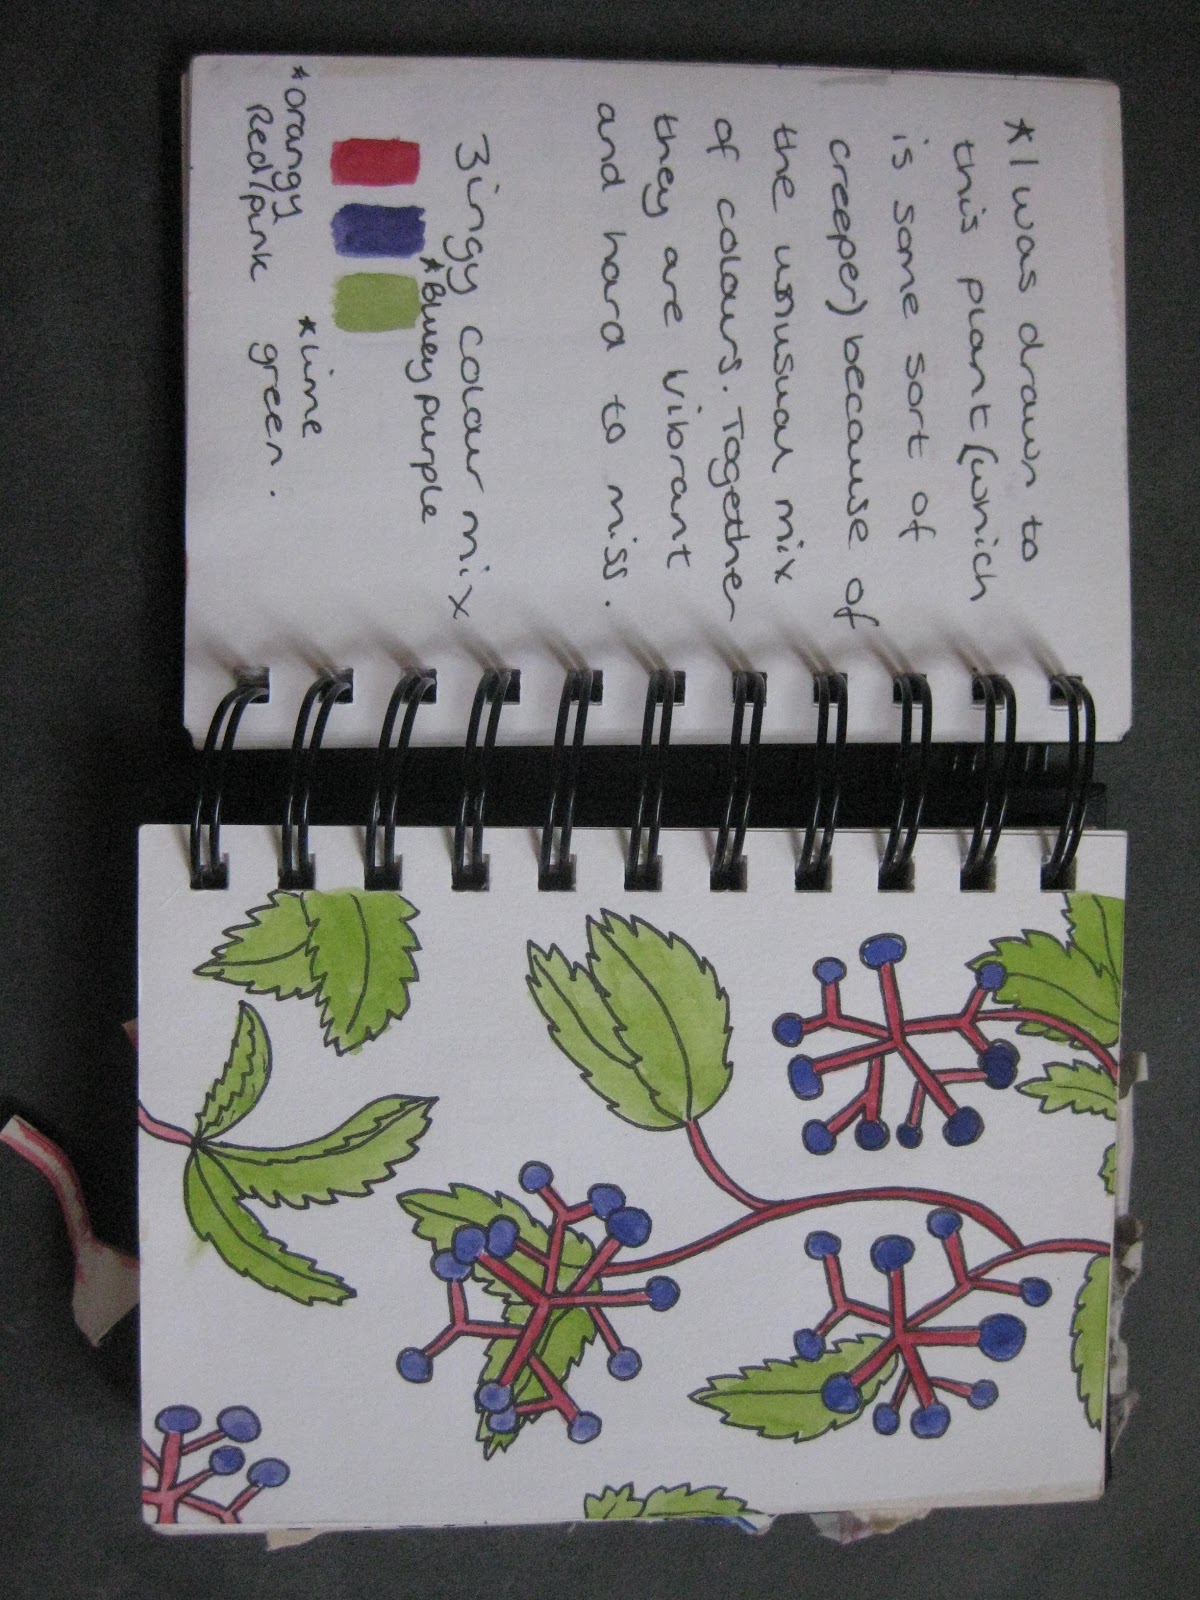 *I was drawn to
this plant (which
is some sort of
creeper) because of
the unusual mix
of colours. Together
they are vibrant
and hard to miss.
Zingy colour mix
*Bluey purple
*orangy
Red/pink
*Lime
green.